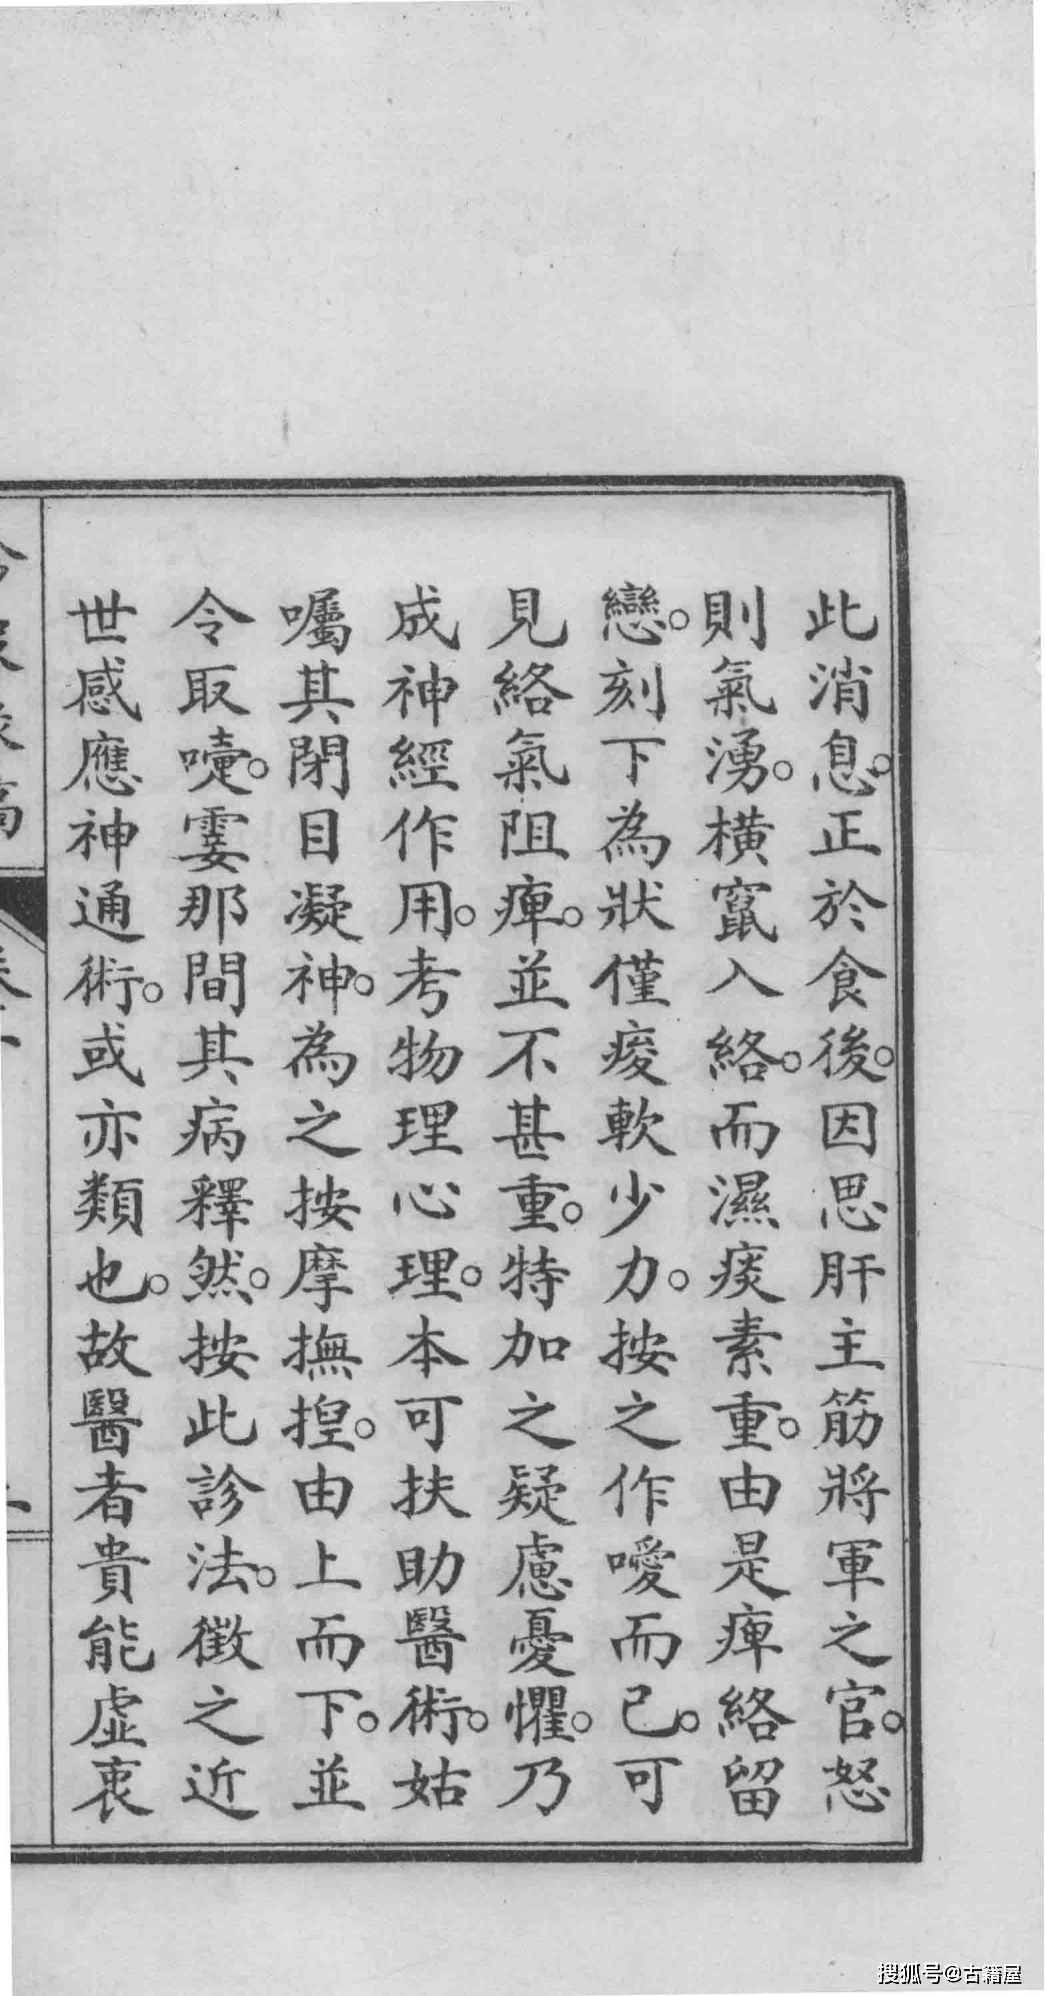 此消息。正於食後。因思肝主筋將軍之官。怒
則氣湧。橫竄入絡。而濕痰素重。由是痺絡留
戀。刻下為狀僅痠軟少力。按之作噯而已。可
見絡氣阻痺。並不甚重。特加之疑慮憂懼。乃
成神經作用。考物理心理。本可扶助醫術。姑
囑其閉目凝神。為之按摩撫揑。由上而下。並
令取嚏。霎那間其病釋然。按此診法。徵之近
世感應神通術。或亦類也。故醫者貴能虛衷
搜狐号@古籍屋